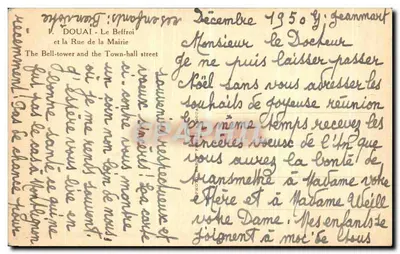 DOUAI - Le Beffroi
et la Rue de la Mairie
The Bell-tower and the Town-hall street
Décembre 1950 G. Jeanmart
Monsieur le Docteur
Je ne puis laisser passer
Noël sans vous adresser les
souhaits de joyeuse réunion
En même temps recevez les
sincères voeux de l'An que
vous aurez la bonté de
transmettre à Madame votre
Mère et à Madame Weill
votre Dame. Mes enfants se
joignent à moi de tous
souvenirs respectueux et
voeux sincères! La carte
ci-contre vous montre
un coin non loin de nous
où je me rends souvent.
J'espère vous lire en
bonne santé ce qui ne
fut pas le cas à
récemment! Pas de chance pour
ses enfants: